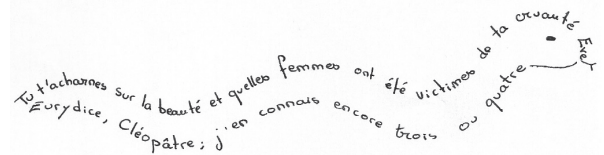 Tu t'acharnes sur la beauté et quelles femmes ont été victimes de ta cruauté Eve,
Eurydice, Cléopâtre; j'en connais encore trois ou quatre